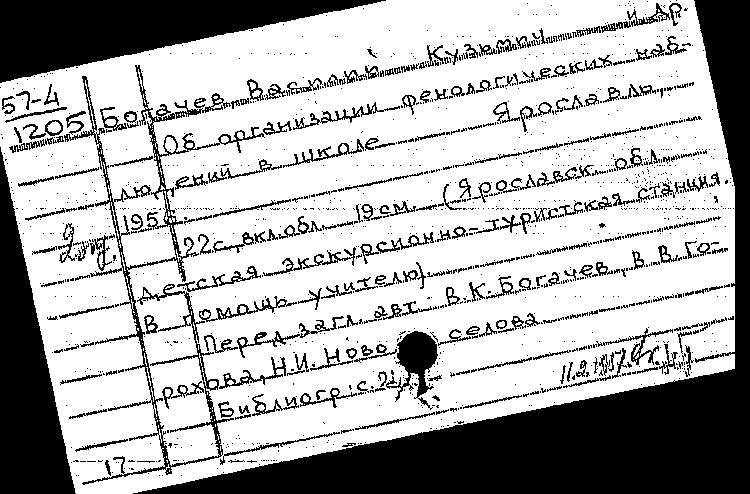 57-4
1205
Богачев, Василий Кузьмич и др.
Об организации фенологических наб-
людений в школе Ярославль,
1956.
22с., вкл. обл. 19см. (Ярославск. обл.
детская экскурсионно-туристская станция.
В помощь учителю).
Перед загл. авт: В.К. Богачев, В.В. Го-
рохова, Н.И. Новоселова.
Библиогр: с.
17